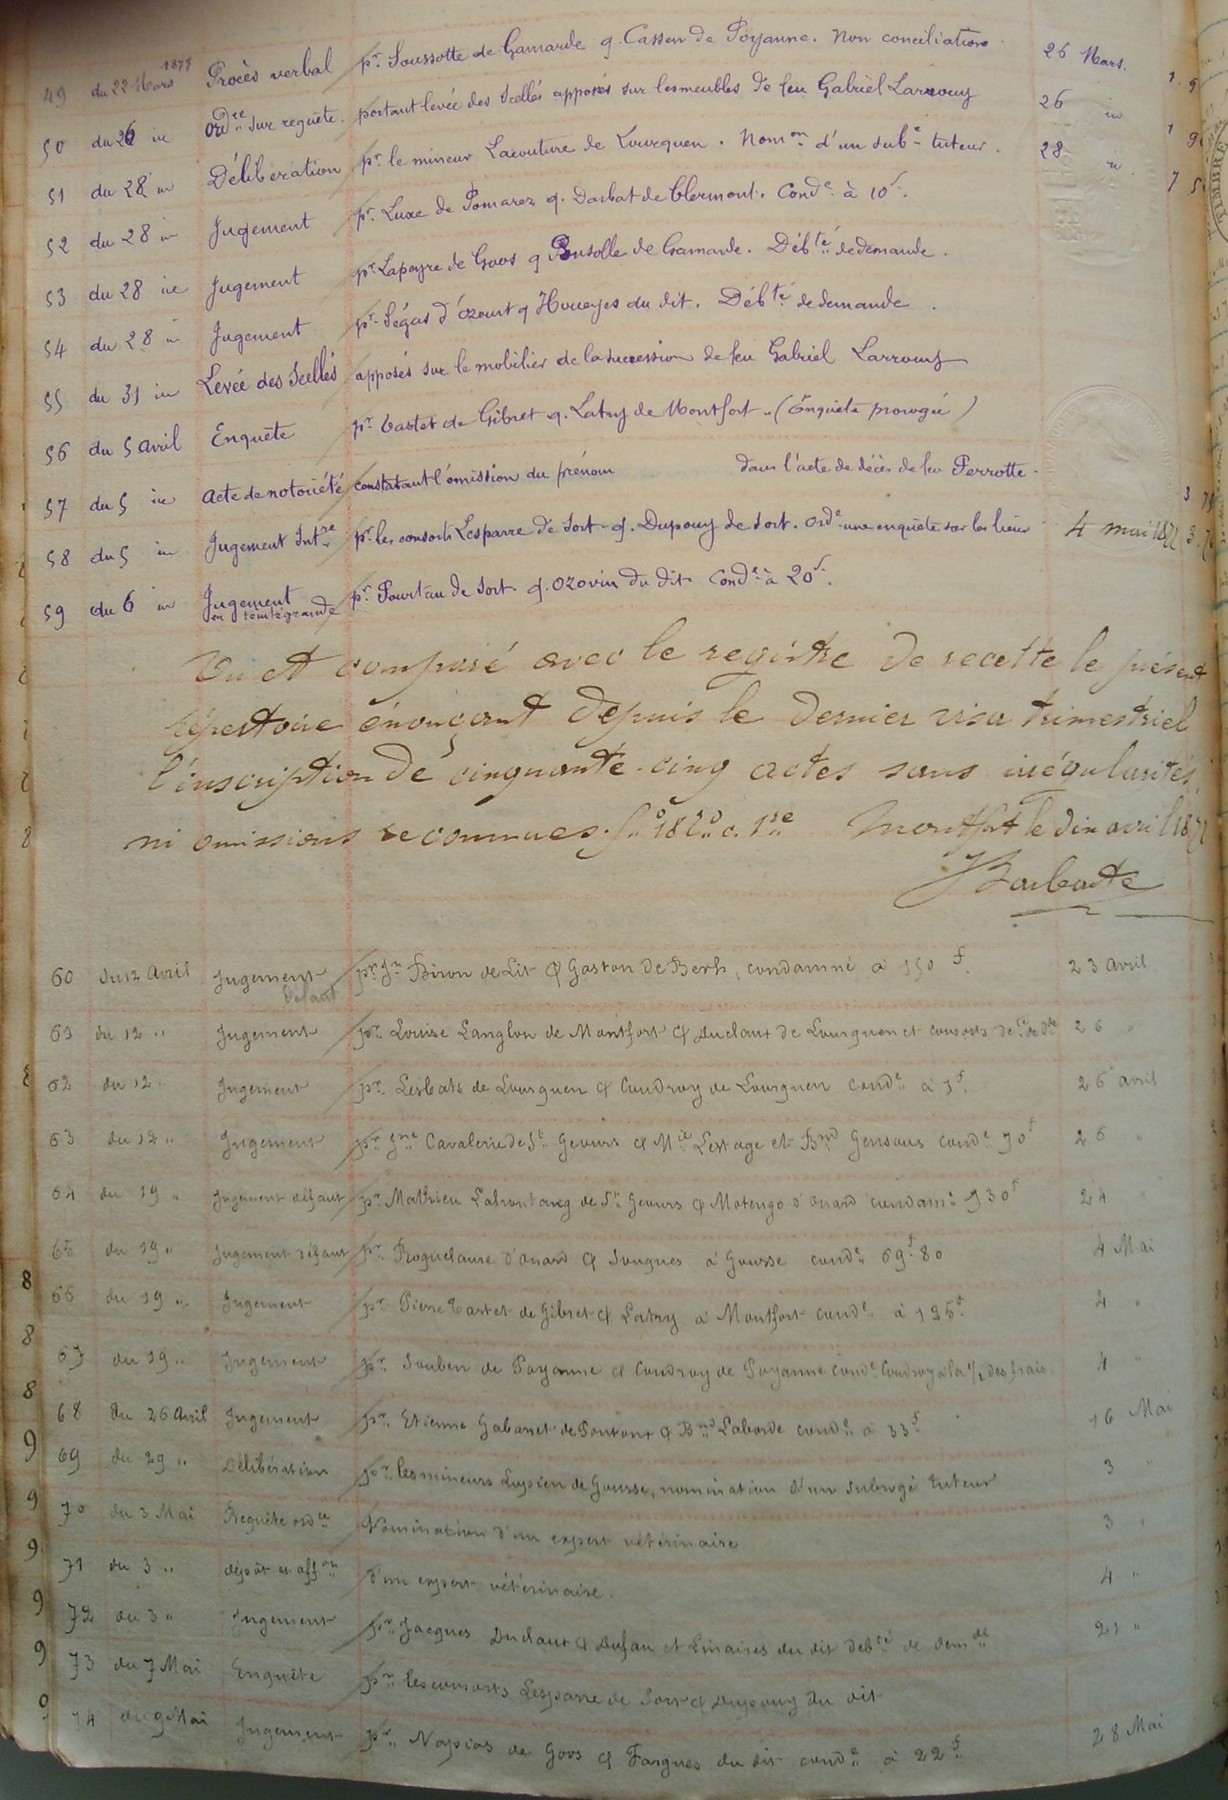 49 du 22 Mars 1877 Procès verbal pr Soussotte de Gamarde q. Cassen de Poyanne. Non conciliation 26 Mars. 1. 9
50 du 26 in Ordce sur requête. portant levée des Scellés apposés sur les meubles de feu Gabriel Larrouy 26 in 1 9
51 du 28 in Délibération pr le mineur Lacouture de Lourquen. Nomon d'un subé tuteur. 28 in 7 5
52 du 28 in Jugement pr Luxe de Pomarez q. Darbat de Clermont. Condé à 10f.
53 du 28 in Jugement pr Lapeyre de Goos q Pousolle de Gamarde. Débté de demande.
54 du 28 in Jugement pr Ségas d'Ozourt q Houeyes du dit. Débté de demande.
55 du 31 in Levée des Scellés apposés sur le mobilier de la succession de feu Gabriel Larrouy
56 du 5 avril Enquête pr Tastet de Gibret q. Latry de Montfort. (Enquête prorogée)
57 du 5 in acte de notoriété constatant l'omission du prénom dans l'acte de décès de feu Perrotte. 3. 75
58 du 5 in Jugement Intre pr les consorts Lesparre de Sort q. Dupouy de Sort. Ordé une enquête sur les lieux 4 mai 1877 3. 75
59 du 6 in Jugement pr Pourtau de Sort q. Ozovin du dit Condé à 20f.
Vu et comparé avec le registre de recette le présent
répertoire énonçant depuis le dernier visa trimestriel
l'inscription de cinquante-cinq actes sans irrégularités
ni omissions reconnues. fo 182o c. 1re Montfort le dix avril 1877
Barbaste
60 du 12 Avril Jugement défaut pr Jn Biron de Lit & Gaston de Berh, condamné à 150 f. 23 Avril
61 du 12 " Jugement pr Louise Langlon de Montfort & Duclaux de Lourquen et consorts 26 "
62 du 12 " Jugement pr Lesbats de Lourquen & Coudroy de Lourquen condé à 5f 26 avril
63 du 12 " Jugement pr Jne Cavalerie de St Geours & Mie Lestage et Bnd Gensous condé 70f 26 "
64 du 19 " Jugement défaut pr Mathieu de St Geours & Motengo d'onard condamé 130f 24 "
65 du 19 " Jugement défaut pr Roquelaure d'onard & Songues à Gousse condé 69f 80 4 Mai
66 du 19 " Jugement pr Pierre Tartet de Gibret & Latry à Montfort condé à 125f 4 "
67 du 19 " Jugement pr Souben de Poyanne & Coudroy de Poyanne condé Coudroy à la 1/2 des frais. 4 "
68 du 26 Avril Jugement pr Etienne Gabarret de Pontonx & Bnd Laborde condé à 33f 16 Mai
69 du 29 " Délibération pr les mineurs Lupien de Gousse, nomination d'un subrogé tuteur 3 "
70 du 3 Mai Requête ordce Nomination d'un expert vétérinaire 3 "
71 du 3 " dépôt et affon d'un expert vétérinaire. 4 "
72 du 3 " Jugement pr Jacques Duclaux & Dufau et Linaires du dit débté de demde 21 "
73 du 7 Mai Enquête pr les consorts Lesparre de Sort & Dupouy du dit
74 du 9 Mai Jugement pr Napias de Goos & Fargues du dit condé à 22f 28 Mai